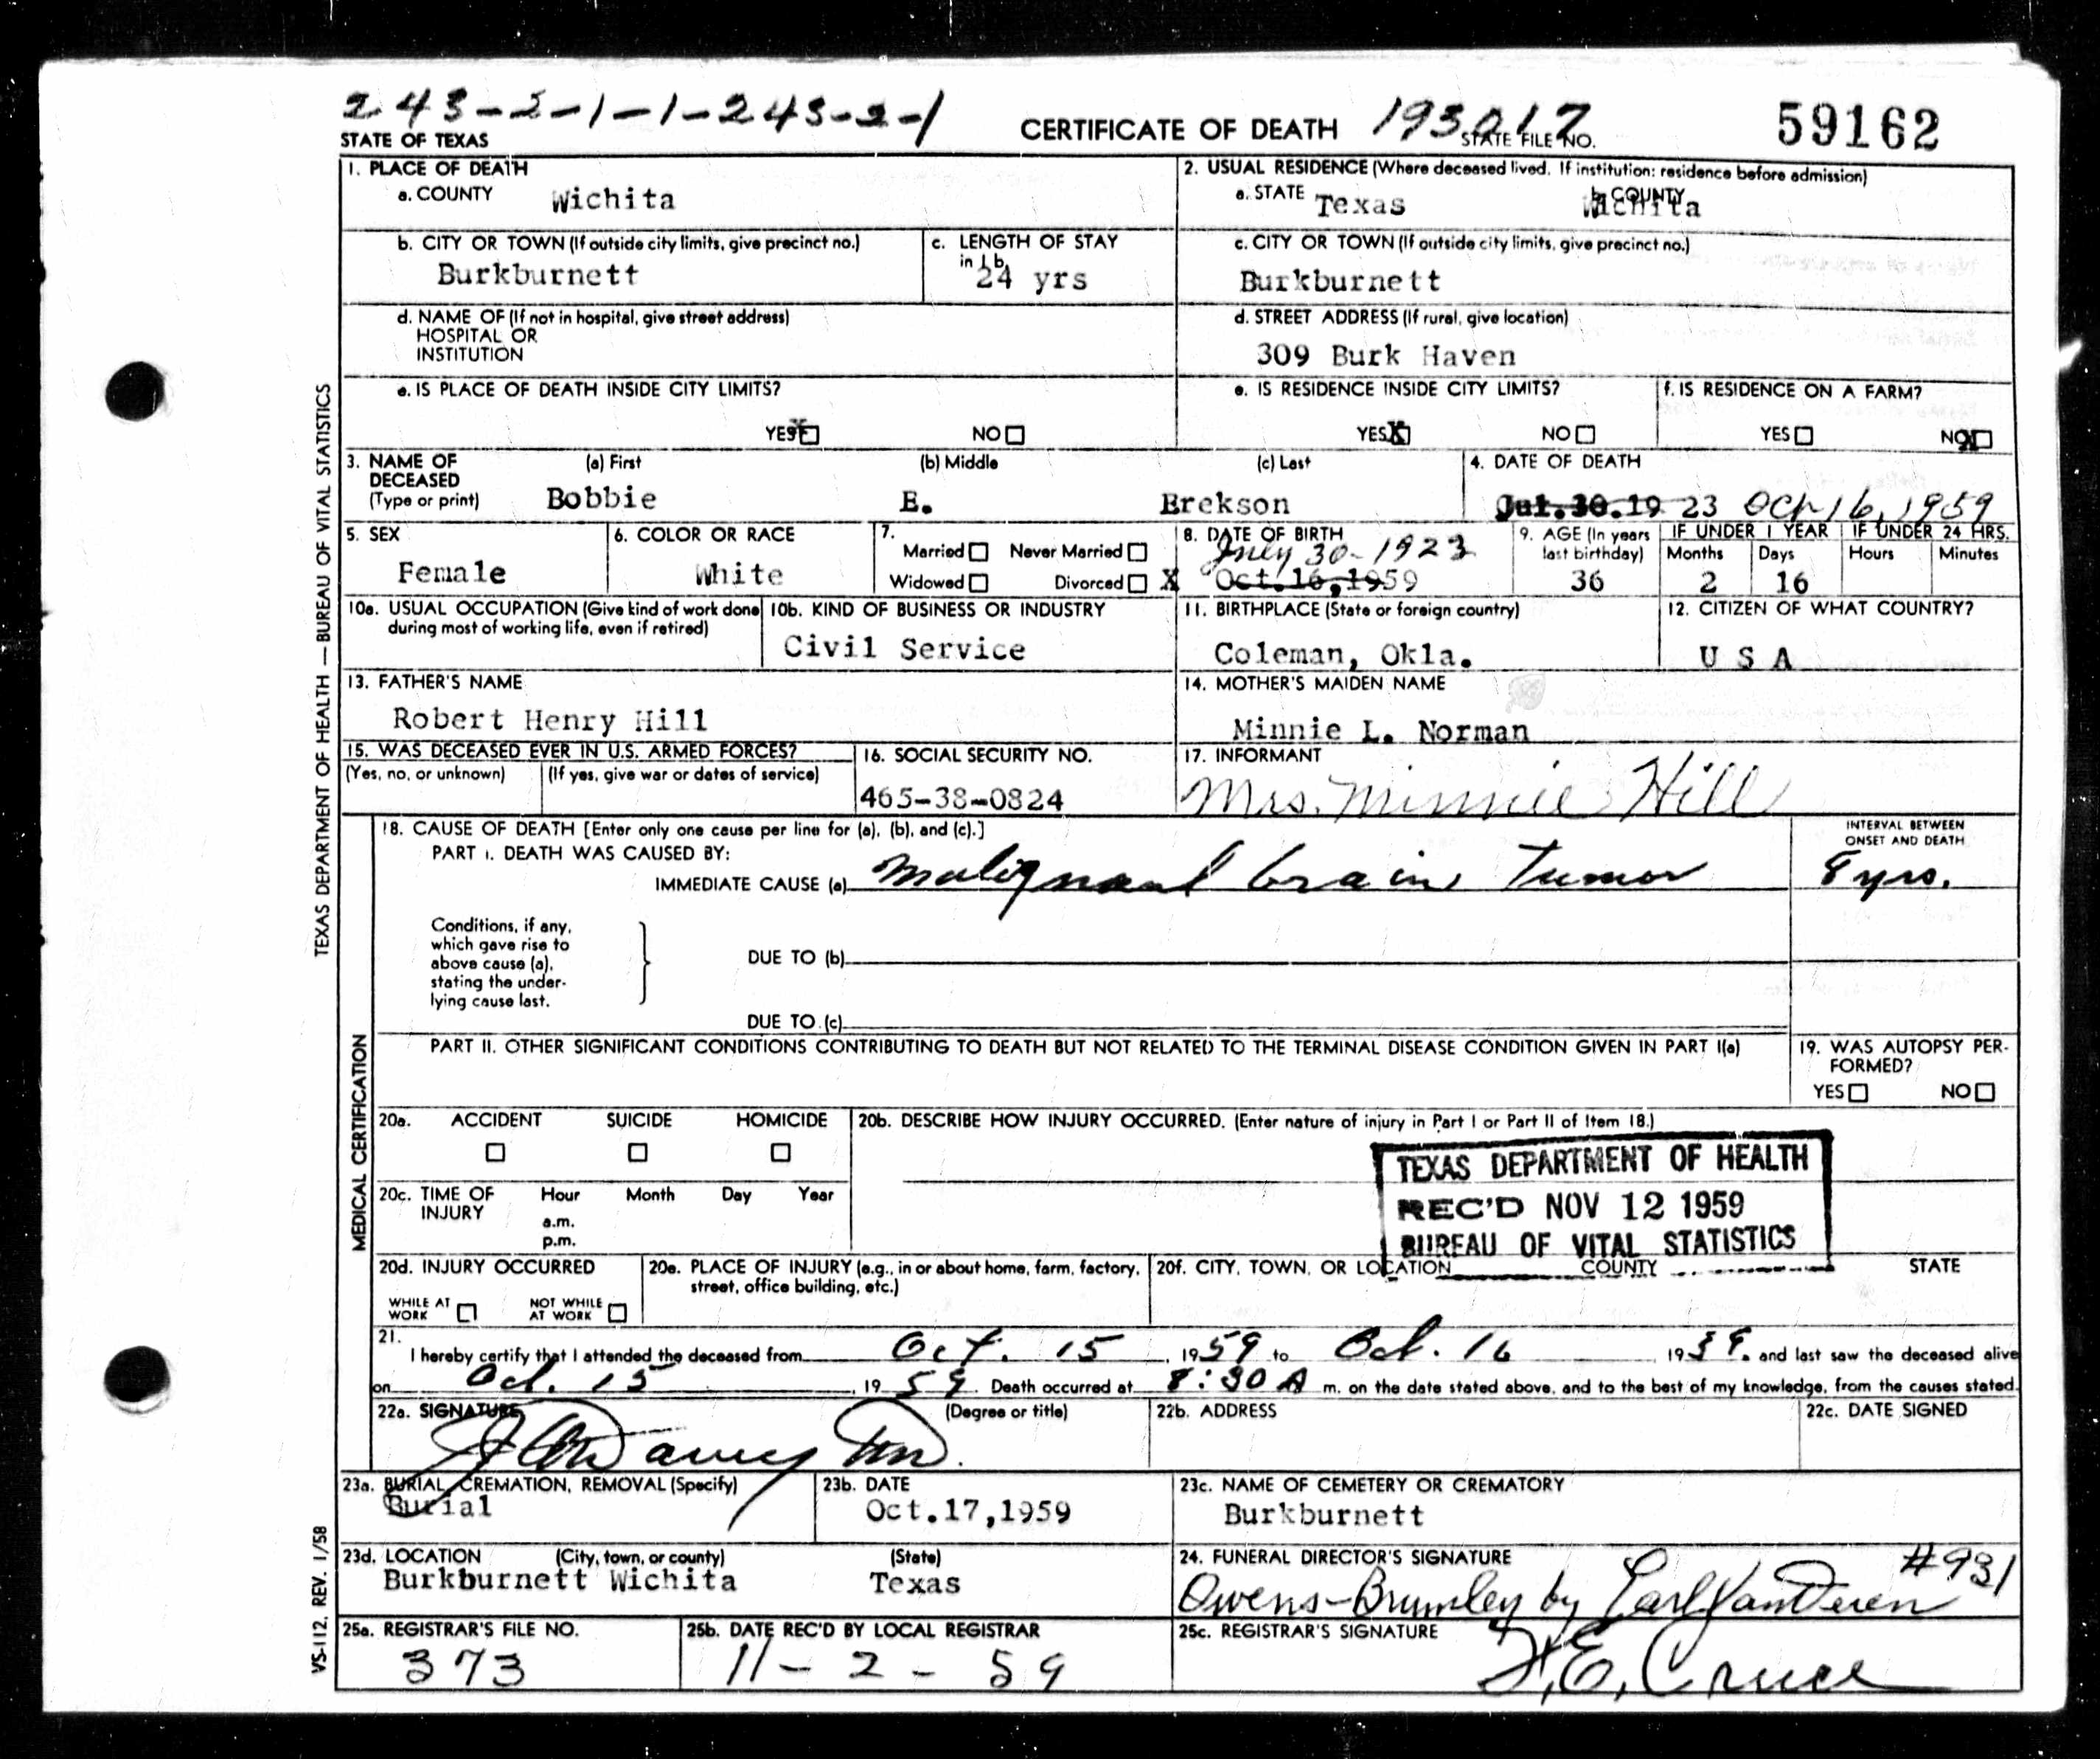 243-2-1-1-243-2-1
STATE OF TEXAS
CERTIFICATE OF DEATH
STATE FILE NO.
59162
TEXAS DEPARTMENT OF HEALTH — BUREAU OF VITAL STATISTICS
1. PLACE OF DEATH
a. COUNTY Wichita
2. USUAL RESIDENCE (Where deceased lived. If institution: residence before admission)
a. STATE Texas b. COUNTY Wichita
b. CITY OR TOWN (If outside city limits, give precinct no.)
Burkburnett
c. LENGTH OF STAY in 1b
24 yrs
c. CITY OR TOWN (If outside city limits, give precinct no.)
Burkburnett
d. NAME OF (If not in hospital, give street address)
HOSPITAL OR
INSTITUTION
d. STREET ADDRESS (If rural, give location)
309 Burk Haven
e. IS PLACE OF DEATH INSIDE CITY LIMITS?
YES X NO
e. IS RESIDENCE INSIDE CITY LIMITS?
YES X NO
f. IS RESIDENCE ON A FARM?
YES NO X
3. NAME OF DECEASED (Type or print)
(a) First Bobbie
(b) Middle E.
(c) Last Erekson
4. DATE OF DEATH
Jul.30.19 23 Oct 16, 1959
5. SEX
Female
6. COLOR OR RACE
White
7.
Married Never Married
Widowed Divorced X
8. DATE OF BIRTH
July 30-1923
Oct.16,1959
9. AGE (In years last birthday)
36
IF UNDER 1 YEAR
Months 2 Days 16
IF UNDER 24 HRS.
Hours Minutes
10a. USUAL OCCUPATION (Give kind of work done during most of working life, even if retired)
10b. KIND OF BUSINESS OR INDUSTRY
Civil Service
11. BIRTHPLACE (State or foreign country)
Coleman, Okla.
12. CITIZEN OF WHAT COUNTRY?
U S A
13. FATHER'S NAME
Robert Henry Hill
14. MOTHER'S MAIDEN NAME
Minnie L. Norman
15. WAS DECEASED EVER IN U.S. ARMED FORCES?
(Yes, no, or unknown) (If yes, give war or dates of service)
16. SOCIAL SECURITY NO.
465-38-0824
17. INFORMANT
Mrs. Minnie Hill
MEDICAL CERTIFICATION
18. CAUSE OF DEATH [Enter only one cause per line for (a), (b), and (c).]
PART I. DEATH WAS CAUSED BY:
IMMEDIATE CAUSE (a) Malignant brain tumor
INTERVAL BETWEEN ONSET AND DEATH
8 yrs.
Conditions, if any, which gave rise to above cause (a), stating the underlying cause last.
DUE TO (b)
DUE TO (c)
PART II. OTHER SIGNIFICANT CONDITIONS CONTRIBUTING TO DEATH BUT NOT RELATED TO THE TERMINAL DISEASE CONDITION GIVEN IN PART I(a)
19. WAS AUTOPSY PERFORMED?
YES NO
20a. ACCIDENT SUICIDE HOMICIDE
20b. DESCRIBE HOW INJURY OCCURRED. (Enter nature of injury in Part I or Part II of Item 18.)
TEXAS DEPARTMENT OF HEALTH
REC'D NOV 12 1959
BUREAU OF VITAL STATISTICS
20c. TIME OF INJURY Hour Month Day Year
a.m.
p.m.
20d. INJURY OCCURRED
WHILE AT WORK NOT WHILE AT WORK
20e. PLACE OF INJURY (e.g., in or about home, farm, factory, street, office building, etc.)
20f. CITY, TOWN, OR LOCATION COUNTY STATE
21.
I hereby certify that I attended the deceased from Oct. 15, 1959 to Oct. 16, 1959. and last saw the deceased alive
on Oct. 15, 1959. Death occurred at 8:30 A m. on the date stated above, and to the best of my knowledge, from the causes stated.
22a. SIGNATURE (Degree or title)
22b. ADDRESS
22c. DATE SIGNED
23a. BURIAL, CREMATION, REMOVAL (Specify)
Burial
23b. DATE
Oct.17,1959
23c. NAME OF CEMETERY OR CREMATORY
Burkburnett
23d. LOCATION (City, town, or county) (State)
Burkburnett Wichita Texas
24. FUNERAL DIRECTOR'S SIGNATURE
#931
Owens-Brumley by Earl VanDeren
25a. REGISTRAR'S FILE NO.
373
25b. DATE REC'D BY LOCAL REGISTRAR
11-2-59
25c. REGISTRAR'S SIGNATURE
VS-112. REV. 1/58